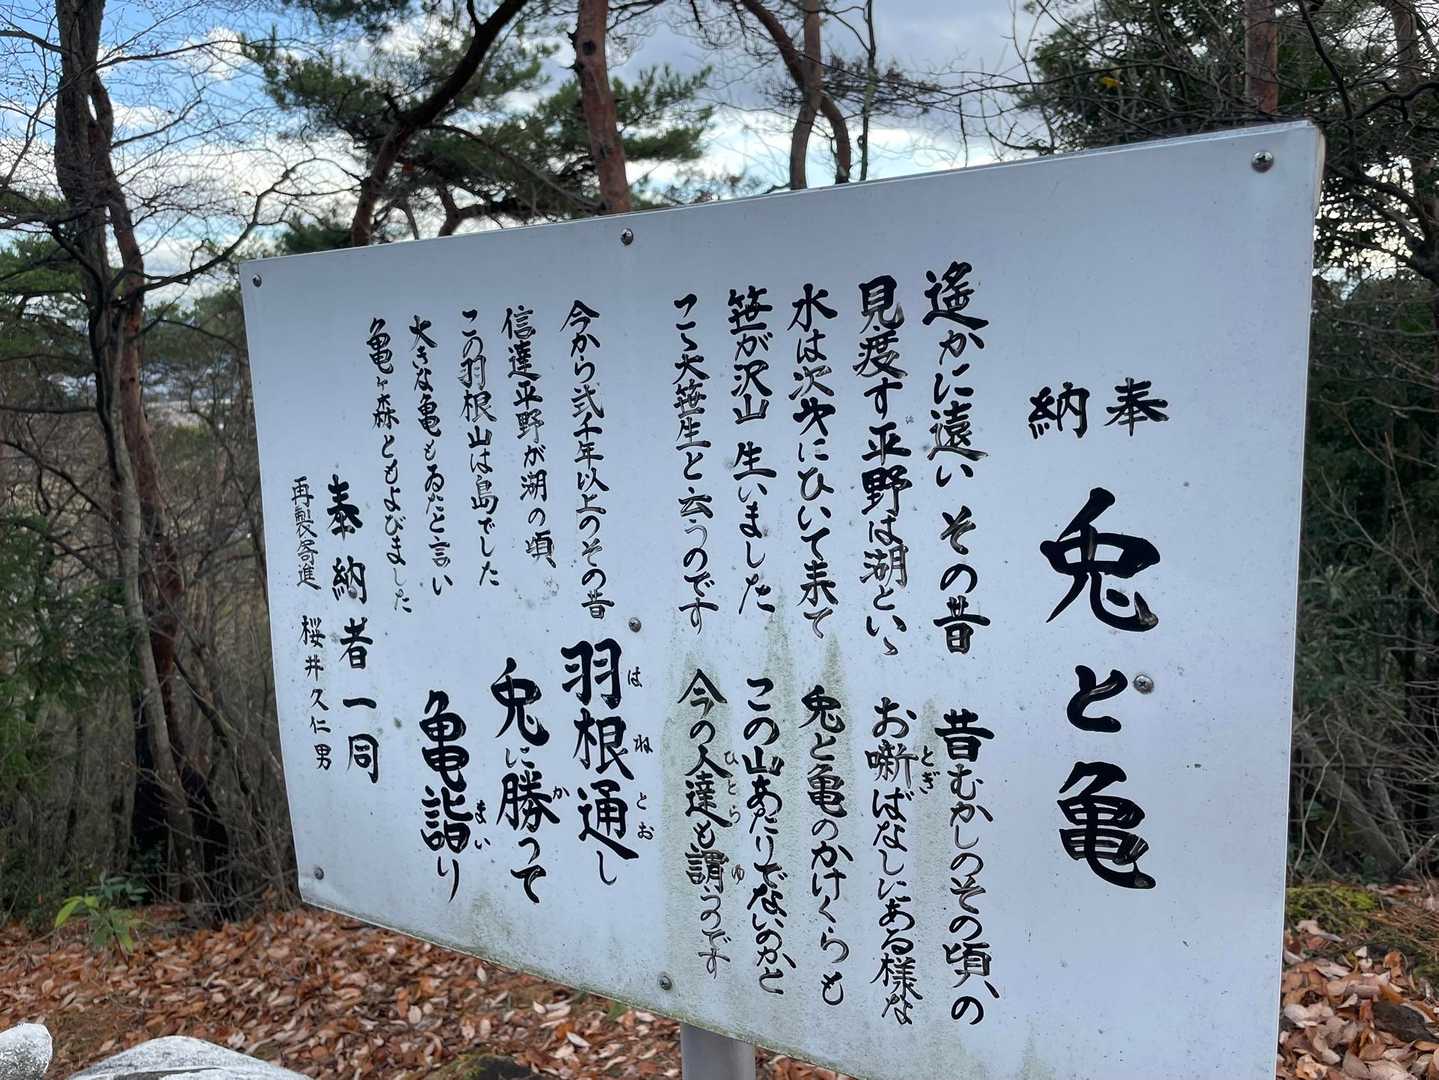 奉納
兎と亀
遙かに遠い その昔
見度す平野は湖といゝ
水は次次にひいて来て
笹が沢山 生いました
こゝ大笹生と云うのです
昔むかしのその頃、の
お噺ばなしにある様な
とぎ
兎と亀のかけくらも
この山あたりでないのかと
今の人達も謂うのです
ひとら
ゆ
今から弍千年以上のその昔
信達平野が湖の頃、
この羽根山は島でした
大きな亀もゐたと言い
亀ヶ森ともよびました
羽根通し
はねとお
兎に勝って
か
亀詣り
まい
奉納者一同
再製寄進 桜井久仁男